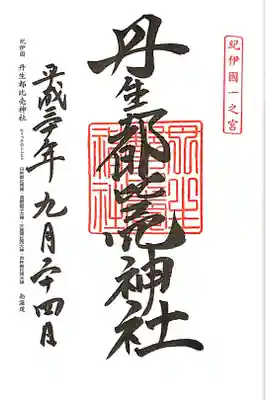 紀伊國一之宮
丹生都比売神社
平成 年 九月二十四日
紀伊国 丹生都比売神社 南海道